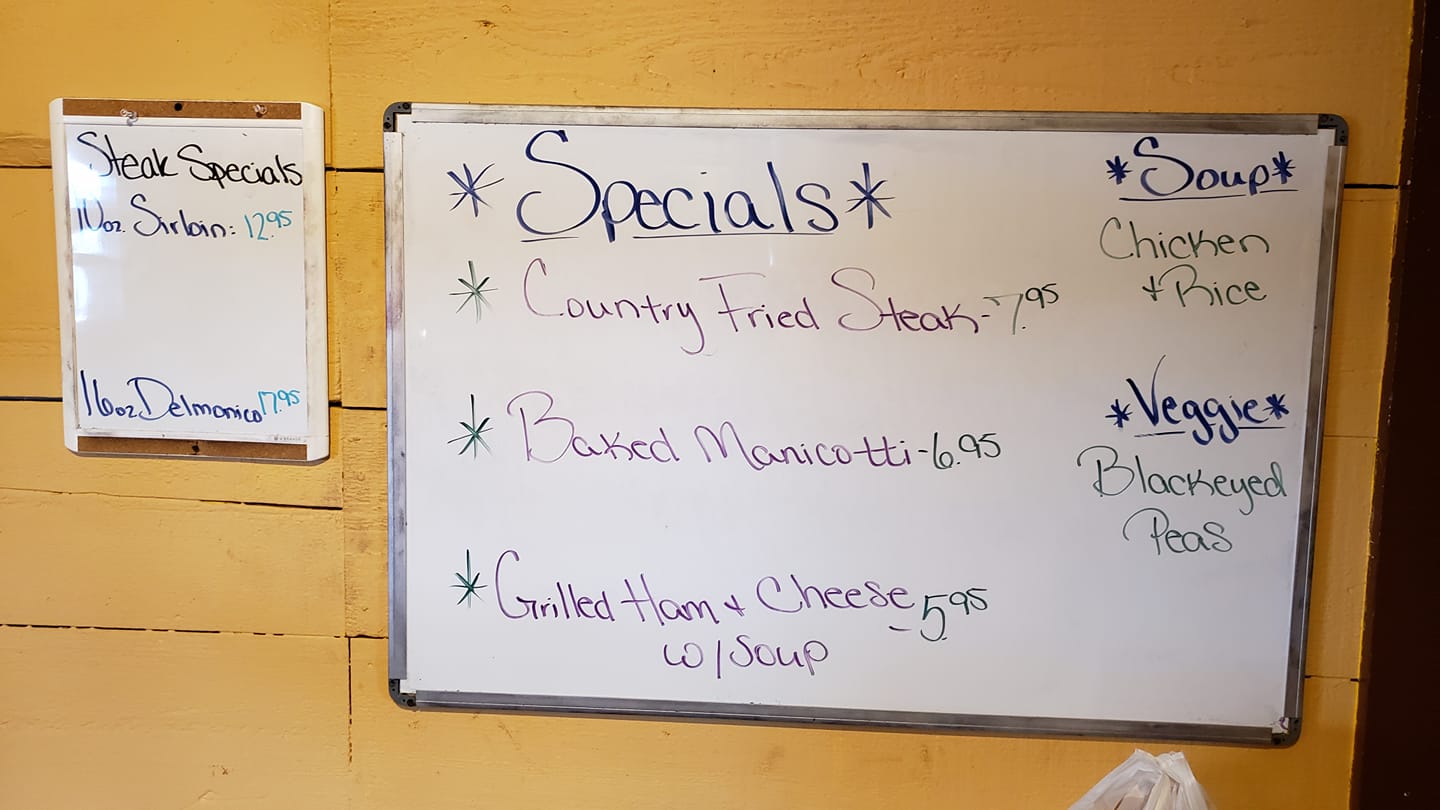 Steak Specials
10oz. Sirloin: 12.95
16oz Delmonico 17.95
*Specials*
* Country Fried Steak - 7.95
* Baked Manicotti - 6.95
* Grilled Ham + Cheese - 5.95
w/ Soup
*Soup*
Chicken
+ Rice
*Veggie*
Blackeyed
Peas